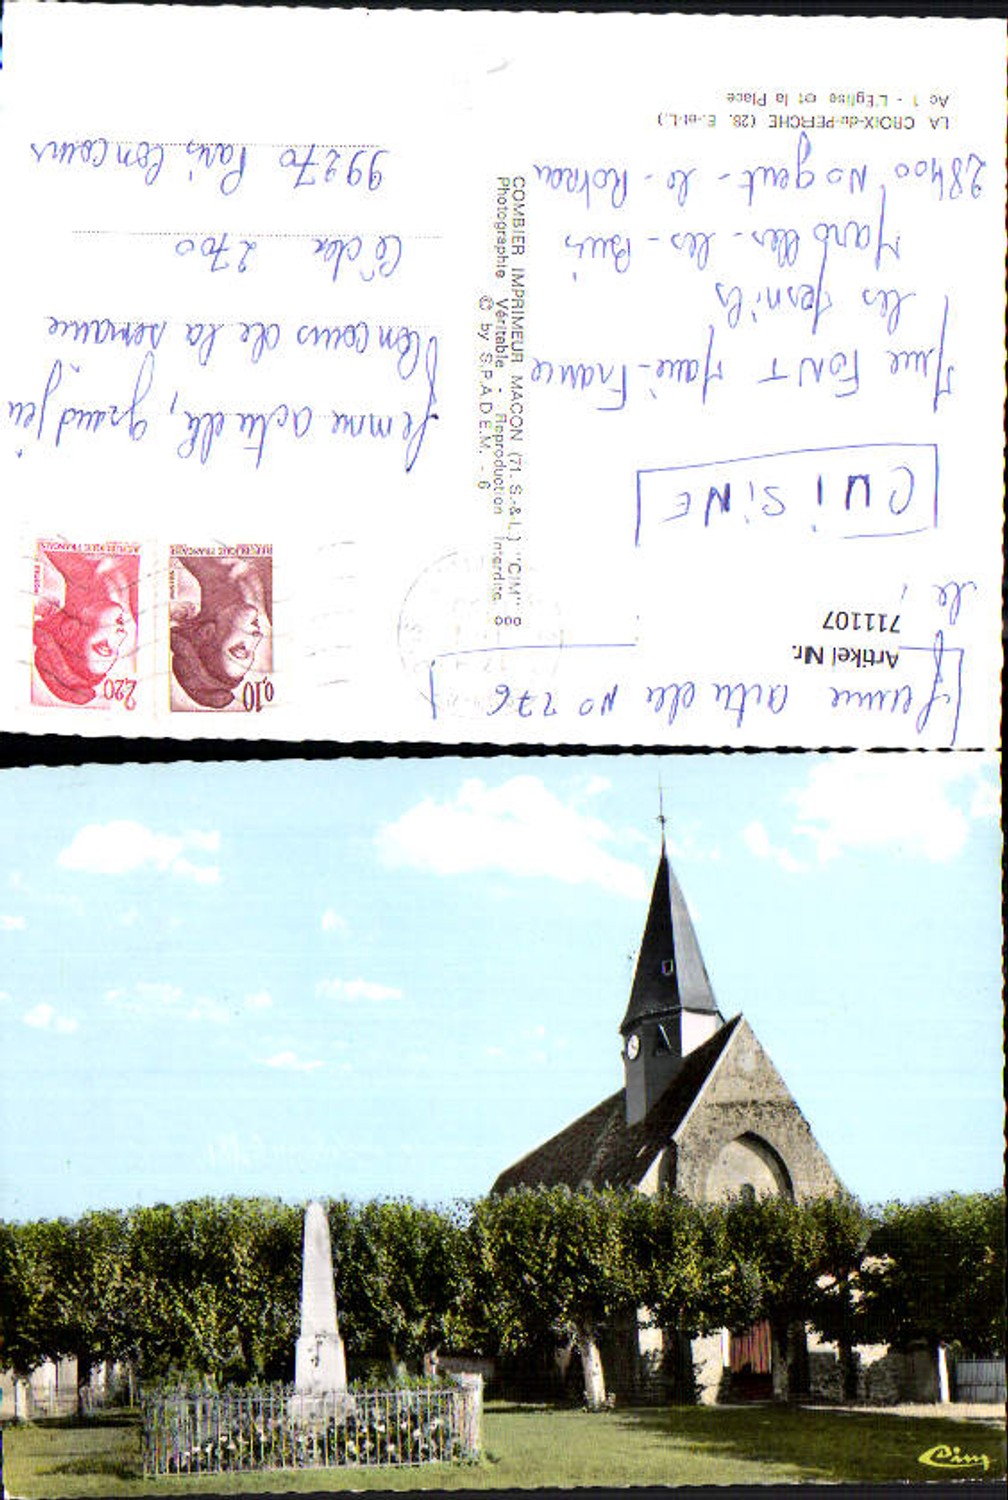 LA CROIX-du-PERCHE (28. E.-et-L.)
Ac 1 - L'Eglise et la Place
Femme actuelle No 276
Artikel Nr.
711107
CUISINE
Mme FONT Marie-France
les Mesnils
Marolles-les-Buis
28400 Nogent-le-Rotrou
COMBIER IMPRIMEUR MACON (71. S.-&-L.) "CIM"
Photographie Véritable - Reproduction Interdite
© by S.P.A.D.E.M. - 6
0,10
REPUBLIQUE FRANCAISE
2,20
REPUBLIQUE FRANCAISE
femme actuelle, grand jeu
Concours de la semaine
Cédex 2700
99270 Paris Concours
Cim